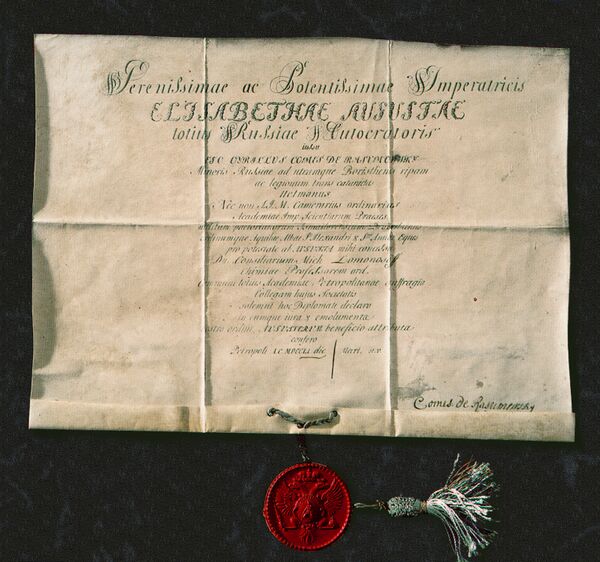 Serenissimae ac Potentissimae Imperatricis
ELISABETHAE AUGUSTAE
totius Russiae Autocratoris
iussu
EGO CYRILLUS COMES DE RASUMOWSKY
Minoris Russiae ad utramque Boristhenis ripam
ac legionum trans catarracta
Hetmanus
Nec non S.I.M. Camerarius ordinarius
Academiae Imp. Scientiarum Praeses
ordinumque Aquilae Albae S. Alexandri & Stae Annae Eques
pro potestate ab AUGUSTA mihi concessa
Dn. Consiliarium Mich. Lomonosoff
Chimiae Professorem ord.
Communi totius Academiae Petropolitanae suffragio
Collegam hujus Societatis
solemni hoc Diplomate declaro
in eumque iura & emolumenta
nostro ordini, AUGUSTARUM beneficio attributa
confero
Petropoli A.C. MDCCLI die Mart.
Comes de Rasumowsky